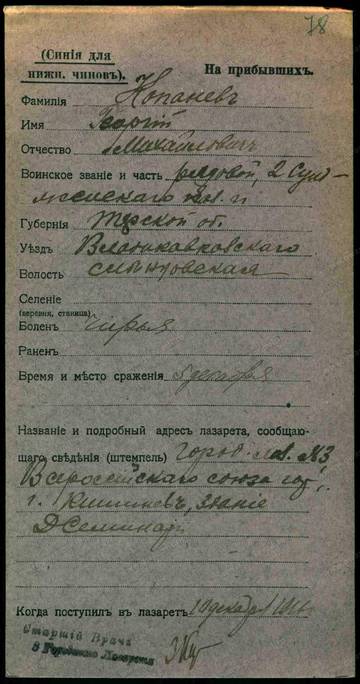 78
(Синія для
нижн. чиновъ).
На прибывшихъ.
Фамилія Копаневъ
Имя Георгій
Отчество Михайловичъ
Воинское званіе и часть рядовой, 2
Губернія Терской об.
Уѣздъ Владикавказскаго
Волость
Селеніе
(деревня, станица)
Боленъ
Раненъ
Время и мѣсто сраженія 5 декабря
Названіе и подробный адресъ лазарета, сообщаю-
щаго свѣдѣнія (штемпель) Город. лаз. №3
Всероссійскаго союза гор.
г. Кишиневъ, зданіе
Д Семинар
Когда поступилъ въ лазаретъ 10 декабря 1916
Старшій Врачъ
3 Городского Лазарета